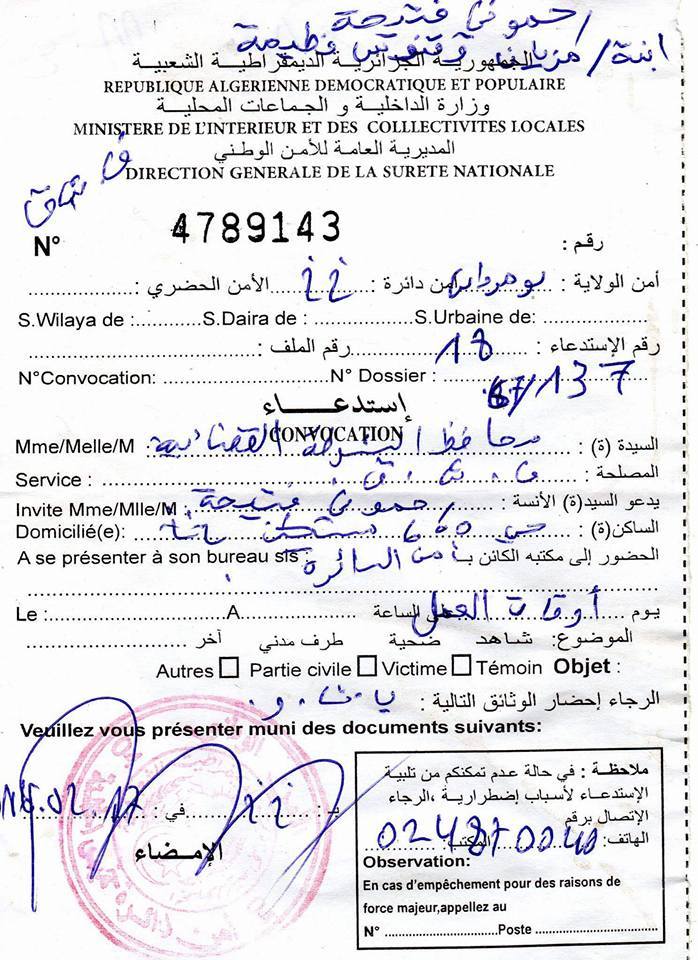 حموني فتيحة
ابنة / مزيان و
الجمهورية الجزائرية الديمقراطية الشعبية
REPUBLIQUE ALGERIENNE DEMOCRATIQUE ET POPULAIRE
وزارة الداخلية و الجماعات المحلية
MINISTERE DE L'INTERIEUR ET DES COLLLECTIVITES LOCALES
المديرية العامة للأمن الوطني
DIRECTION GENERALE DE LA SURETE NATIONALE
N° 4789143 رقم :
أمن الولاية : بومرداس أمن دائرة : الأمن الحضري :
S.Wilaya de : S.Daira de : S.Urbaine de:
رقم الإستدعاء : 18 رقم الملف :
N°Convocation: N° Dossier : /137
إستدعـــاء
CONVOCATION
Mme/Melle/M : محافظ الشرطة القضائية السيدة (ة) :
Service : المصلحة :
Invite Mme/Mlle/M : حموني فتيحة يدعو السيد(ة) الأنسة :
Domicilié(e): حي 600 مسكن الساكن(ة) :
A se présenter à son bureau sis: أمن الدائرة الحضور إلى مكتبه الكائن بـ
Le : A أوقات العمل الساعة يوم
الموضوع: شاهد ضحية طرف مدني آخر
Autres Partie civile Victime Témoin Objet :
الرجاء إحضار الوثائق التالية :
Veuillez vous présenter muni des documents suivants:
بـ : في : .02.17
الإمـضاء
ملاحظة : في حالة عدم تمكنكم من تلبية
الإستدعاء لأسباب إضطرارية ،الرجاء
الإتصال برقم
الهاتف: المكتب:
Observation:
En cas d'empêchement pour des raisons de
force majeur,appellez au
N° Poste